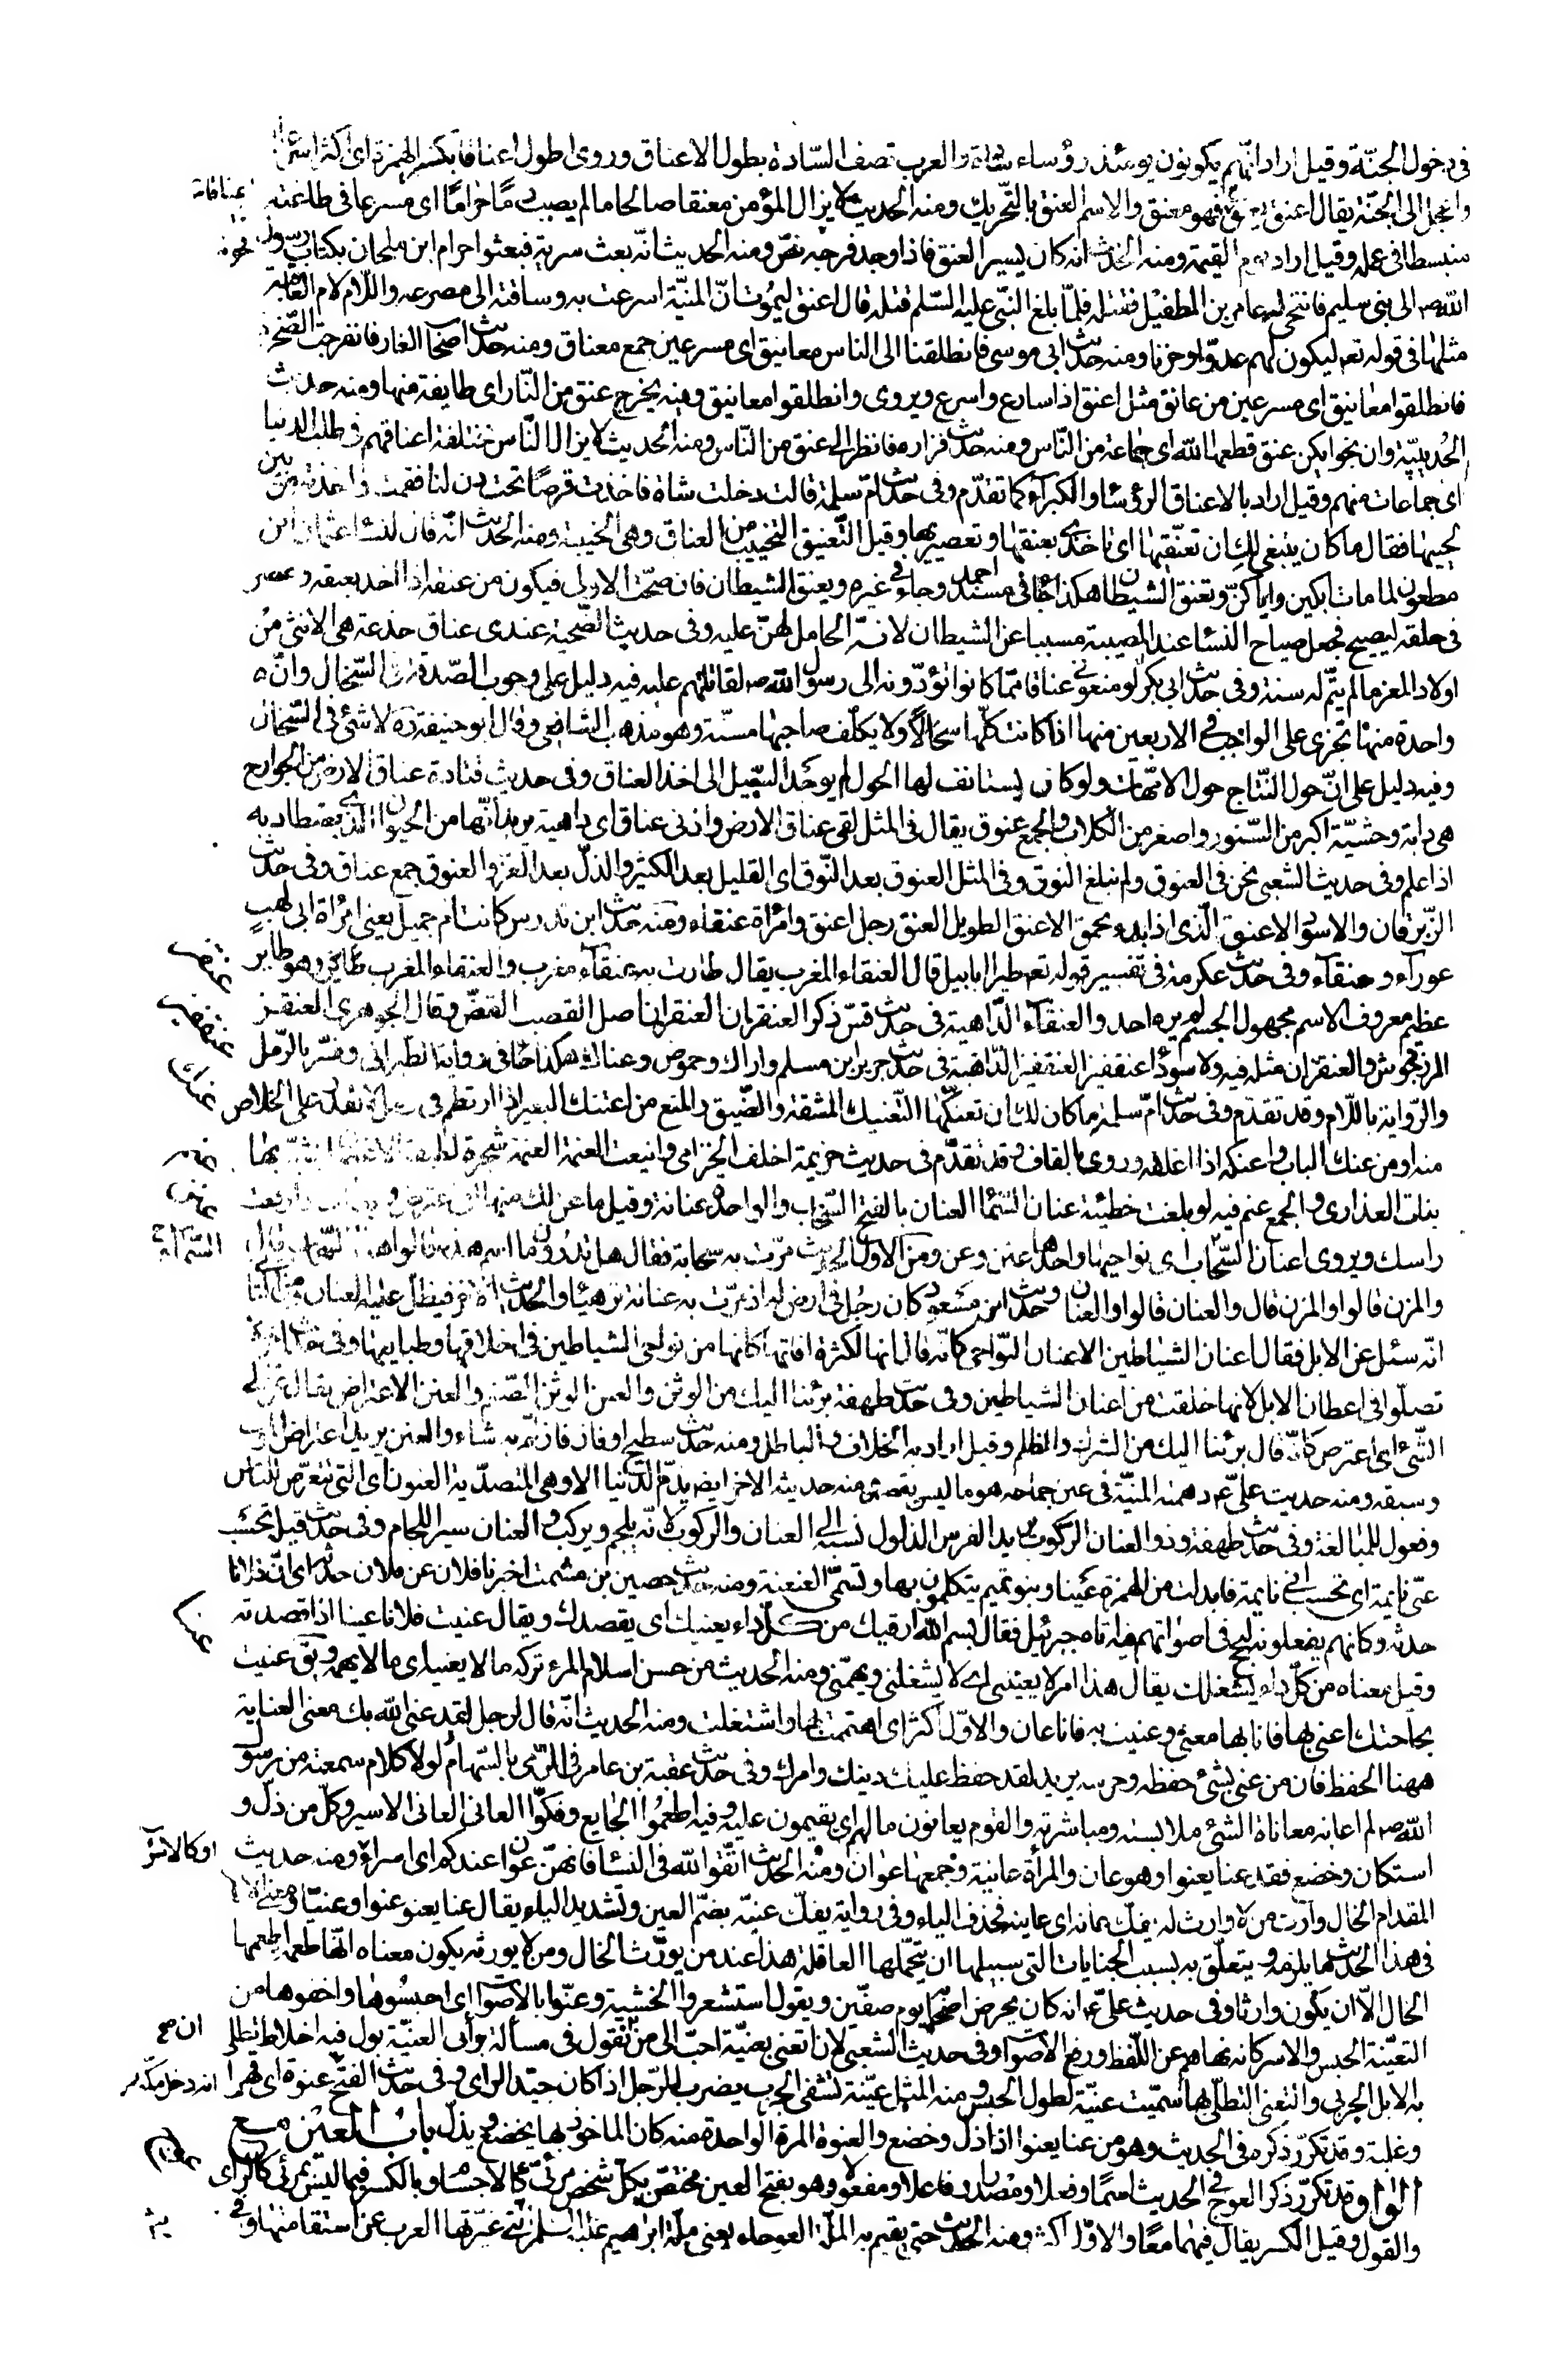 فى دخول الجنّة وقيل اراد انّهم يكونون يومئذ رؤساء سادة والعرب تصف السّادة بطول الاعناق وروى اطول اعناقا بكسر الهمزة اى اكثر اسراعا
واعجل الى الجنّة يقال اعنق يعنق فهو معنق والاسم العنق بالتّحريك ومنه الحديث لا يزال المؤمن معنقا صالحا ما لم يصب دمًا حرامًا اى مسرعا فى طاعته
منبسطا فى عمله وقيل اراد يوم القيمة ومنه الحديث انه كان يسير العنق فاذا وجد فرجه نصّ ومنه الحديث انّه بعث سرية فبعثوا حرام ابن ملحان بكتاب رسول
الله صم الى بنى سليم فانتحى له عامر بن الطفيل فقتله فلمّا بلغ النّبى عليه السّلم قتله قال اعنق ليموت انّ المنيّة اسرعت به وساقته الى مصرعه واللّام لام العاقبة
مثلها فى قوله تعه ليكون لهم عدوّا وحزنا ومنه حديث ابى موسى فانطلقنا الى الناس معانيق اى مسرعين جمع معناق ومنه حديث اصحاب الغار فانفرجت الصّخرة
فانطلقوا معانيق اى مسرعين من عانق مثل اعنق اذا سارع واسرع ويروى وانطلقوا معانيق وفيه يخرج عنق من النّار اى طايفة منها ومنه حديث
الحُديبيّة وان نجوا يكن عنق قطعها الله اى جماعة من النّاس ومنه حديث فزاره فانظر الى عنق من النّاس ومنه الحديث لا يزال النّاس مختلفة اعناقهم فى طلب الدنيا
اى جماعات منهم وقيل اراد بالاعناق الرؤسا والكبراء كما تقدّم وفى حديث امّ سلمة قالت دخلت شاة فاخذت قرصًا تحت دن لنا فقمت واخذته من بين
لحييها فقال ما كان ينبغى لك ان تعنّقيها اى تاخذى بعنقها وتعصريها وقيل التّعنيق التخييب من العناق وهى الخيبة ومنه الحديث انّه قال لنساء عثمان ابن
مطعون لما مات ابكين واياكنّ وتعنق الشيطان هكذا جاء فى مسند احمد وجاء فى غيره ونعيق الشيطان فان صحّت الاولى فيكون من عنقه اذا اخذ بعنقه وعصر
فى حلقه ليصيح فجعل صياح النساء عند المصيبة مسببا عن الشيطان لانّه الحامل لهنّ عليه وفى حديث الضّحية عندى عناق جذعة هى الانثى من
اولاد المعز ما لم يتمّ له سنة وفى حديث ابى بكر لو منعونى عناقا ممّا كانوا تؤدّونه الى رسول الله صم لقاتلتهم عليه فيه دليل على وجوب الصّدقة فى السّخال وانّ
واحدة منها تجزى على الواجب فى الاربعين منها اذا كانت كلّها سخالًا ولا يكلّف صاحبها مسنّة وهو مذهب الشافعى وقال ابو حنيفة ره لا شئ فى السّخال
وفيه دليل على انّ حول النّتاج حول الامّهات ولو كان يستانف لها الحول لم يوجد السّبيل الى اخذ العناق وفى حديث قتادة عناق الارض من الجوارح
هى دابة وحشيّة اكبر من السّنور واصغر من الكلاب والجمع عنوق يقال فى المثل لقى عناق الارض واذنى عناق اى داهية يريد انّها من الحيوان الّذى يصطاد به
اذا علم وفى حديث الشعبى نحن فى العنوق ولم نبلغ النوق وفى المثل العنوق بعد النّوق اى القليل بعد الكثير والذلّ بعد العز والعنوق جمع عناق وفى حديث
الزّبرقان والاسود الاعنق الّذى اذا بدا يحمق الاعنق الطويل العنق رجل اعنق وامرأة عنقاء ومنه حديث ابن تدرس كانت امّ جميل يعنى امرأة ابى لهب
عوراء وعنقاء وفى حديث عكرمة فى تفسير قوله تعه طيرا ابابيل قال العنقاء المغرب يقال طارت به عنقاء مغرب والعنقاء المغرب وهو طاير
عظيم معروف الاسم مجهول الجسم لم يره احد والعنقاء الدّاهية فى حديث قسّ ذكر العنقران العنقر اصل القصب الغضّ وقال الجوهرى العنقز
المرزنجوش والعنقزان مثله فيه ولا سوداء عنقفيز العنقفيز الدّاهية فى حديث جرير ابن مسلم واراك وحموض وعناك هكذا جاء فى رواية الطبرانى وفسّر بالرّمل
والرّواية باللّام وقد تقدّم وفى حديث امّ سلمة ما كان لك ان تعنكّيها التّعنيك المشقة والضّيق والمنع من اعتنك البعير اذا ارتطم فى رمل لا يقدر على الخلاص
منه او من عنك الباب واعنكه اذا اغلقه وروى بالقاف وقد تقدّم فى حديث خزيمة اخلف الخزامى وانيعت العنمة العنمة شجرة لطيفة الاغصان يشبّه بها
بنات العذارى والجمع عنم فيه لو بلغت خطيئة عنان السّماء العنان بالفتح السّحاب والواحدة عنانة وقيل ما عن لك منها اى اعترض وبدا اذا رفعت
راسك ويروى اعنان السّحاب اى نواحيها واحدها عنن وعن ومن الاول الحديث مرّت به سحابة فقال هل تدرون ما اسم هذه قالوا هذا السّحاب قال
والمزن قالوا والمزن قال والعنان قالوا والعنان وحديث ابن مسعود كان رجل فى ارض له اذ مرّت به عنانة ترهيا والحديث فيظل عليه العنان ومن الثانى
انّه سئل عن الابل فقال اعنان الشياطين الاعنان النّواحى كانّه قال انها لكثرة افاتها كانها من نواحى الشياطين فى اخلاقها وطبايعها وفى حديث اخر لا
تصلّوا فى اعطان الابل لانها خلقت من اعنان الشياطين وفى حديث طهفة برئنا اليك من الوثن والعنن الوثن الصّنم والعنن الاعتراض يقال عن لى
الشّئ اى اعترض كانّه قال برئنا اليك من الشرك والظلم وقيل اراد به الخلاف والباطل ومنه حديث سطيح او فاز فازلمّ به شاء والعنن يريد اعتراض الموت
وسبقه ومنه حديث علىّ عه دهمته المنيّة فى عنن جماحه هو ما ليس بقصد ومنه حديثه الاخر ايضه يذمّ الدّنيا الا وهى المتصدّية العنون اى التى تتعرّض للنّاس
وفعول للمبالغة وفى حديث طهفة وذو العنان الرّكوب يريد الفرس الذلول نسبه الى العنان والركوب لانّه يلجم ويركب والعنان سير اللّجام وفى حديث قيل تحسب
عنّى نايمة اى تحسب انّى نايمة فابدلت من الهمزة عينا وبنو تميم يتكلّمون بها وتسمّى العنعنة ومنه حديث حصين بن مشمت اخبرنا فلان عن فلان حدثه اى انّ فلانا
حدثه وكانهم يفعلونه لبحح فى اصواتهم فيه اتاه جبرئيل فقال بسم الله ارقيك من كلّ داء يعنيك اى يقصدك ويقال عنيت فلانا عنيا اذا قصدته
وقيل معناه من كلّ داء يشغلك يقال هذا امر لا يعنينى اى لا يشغلنى ويهمّنى ومنه الحديث من حسن اسلام المرء تركه ما لا يعنيه اى ما لا يهمه ويق عنيت
بحاجتك اعنى بها فانا بها معنىّ وعنيت به فانا عان والاوّل اكثر اى اهتممت بها واشتغلت ومنه الحديث انّه قال لرجل لقد عنى الله بك معنى العناية
ههنا الحفظ فان من عنى بشئ حفظه وحرسه يريد لقد حفظ عليك دينك وامرك وفى حديث عقبة بن عامر فى الرّمى بالسّهام لولا كلام سمعته من رسول
الله صم لم اعانه معاناة الشئ ملابسته ومباشرته والقوم يعانون مالهم اى يقيمون عليه وفيه اطعموا الجايع وفكّوا العانى العانى الاسير وكلّ من ذلّ و
استكان وخضع فقد عنا يعنوا وهو عان والمرأة عانية وجمعها عوان ومنه الحديث اتّقوا الله فى النساء فانهنّ عوان عندكم اى اسراء ومنه حديث
المقدام الخال وارث من لا وارث له يفكّ عانه اى عانيه فحذف الياء وفى رواية يفكّ عنيّه بضمّ العين وتشديد الياء يقال عنا يعنو عنوا وعنيّا ومعنى الاسر
فى هذا الحديث ما يلزمه ويتعلّق به بسبب الجنايات التى سبيلها ان يتحمّلها العاقلة هذا عند من يورّث الخال ومن لا يورثه يكون معناه انّها طعمة اطعمها
الخال الّا ان يكون وارثا وفى حديث علىّ عه انه كان يحرض اصحابه يوم صفّين ويقول استشعروا الخشية وعنّوا بالاصوات اى احبسوها واخفوها من
التعنية الحبس والاسر كانه نهاهم عن اللّغط ورفع الاصوات وفى حديث الشعبى لان اتعنى بعنيّة احبّ الىّ من اقول فى مسألة برأى العنيّة بول فيه اخلاط تطلى
به الابل الجربى والتعنى التطلّى بها سمّيت عنيّة لطول الحبس ومنه المثل عنيّة تشفى الجرب يضرب للرّجل اذا كان جيّد الراى وفى حديث الفتح عنوة اى قهرا
وغلبة وقد تكرّر ذكره فى الحديث وهو من عنا يعنوا اذا ذلّ وخضع والعنوة المرة الواحدة منه كان الماخوذ بها يخضع ويذلّ باب العين مع
الواو قد تكرّر ذكر العوج فى الحديث اسمًا وفعلا ومصدرا وفاعلا ومفعولا وهو بفتح العين مختصّ بكلّ شخص مرئىّ كالاجسام وبالكسر فيما ليس بمرئى كالرّاى
والقول وقيل الكسر يقال فيهما معًا والاوّل اكثر ومنه الحديث حتى يقيم به الملّة العوجاء يعنى ملّة ابراهيم عليه السلم التى غيّرتها العرب عن استقامتها وفى
عنقز
عنقفيز
عنك
عنم
عنن
السّماء
عنا
او كالاسر
ان صح
انه دخل مكّة
عوج